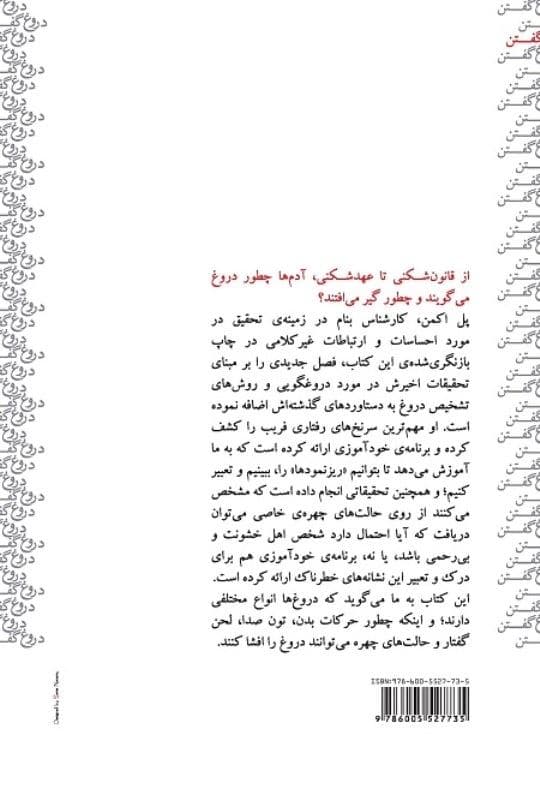 از قانون‌شکنی تا عهدشکنی، آدم‌ها چطور دروغ
می‌گویند و چطور گیر می‌افتند؟
پل اکمن، کارشناس بنام در زمینه‌ی تحقیق در
مورد احساسات و ارتباطات غیرکلامی در چاپ
بازنگری‌شده‌ی این کتاب، فصل جدیدی را بر مبنای
تحقیقات اخیرش در مورد دروغگویی و روش‌های
تشخیص دروغ به دستاوردهای گذشته‌اش اضافه نموده
است. او مهم‌ترین سرنخ‌های رفتاری فریب را کشف
کرده و برنامه‌ی خودآموزی ارائه کرده است که به ما
آموزش می‌دهد تا بتوانیم «ریزنمودها» را، ببینیم و تعبیر
کنیم؛ و همچنین تحقیقاتی انجام داده است که مشخص
می‌کنند از روی حالت‌های چهره‌ی خاصی می‌توان
دریافت که آیا احتمال دارد شخص اهل خشونت و
بی‌رحمی باشد، یا نه، برنامه‌ی خودآموزی هم برای
درک و تعبیر این نشانه‌های خطرناک ارائه کرده است.
این کتاب به ما می‌گوید که دروغ‌ها انواع مختلفی
دارند؛ و اینکه چطور حرکات بدن، تون صدا، لحن
گفتار و حالت‌های چهره می‌توانند دروغ را افشا کنند.
ISBN:978-600-5527-73-5
9 786005 527735